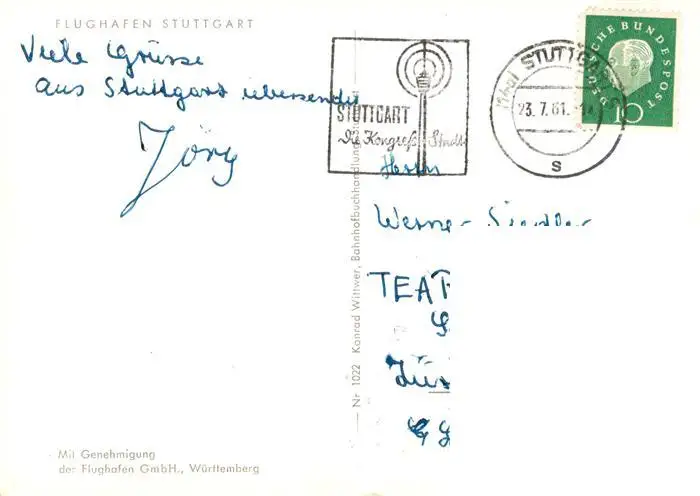 FLUGHAFEN STUTTGART
Viele Grüsse
aus Stuttgart übersendet
Jörg
Mit Genehmigung
der Flughafen GmbH., Württemberg
Nr 1022 Konrad Wittwer, Bahnhofbuchhandlung, Stuttgart
STUTTGART
Die Kongreß-Stadt
STUTTGART
23.7.61
S
DEUTSCHE BUNDESPOST
10
Herrn
Werner
TEA